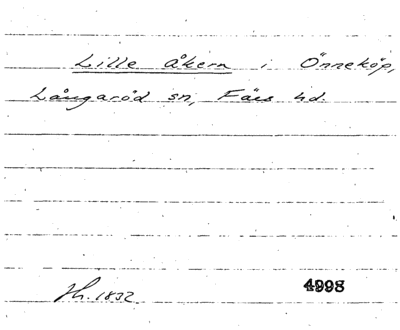 Lille åkern i Önneköp,
Långaröd sn, Färs hd.
Hh. 1832
4998